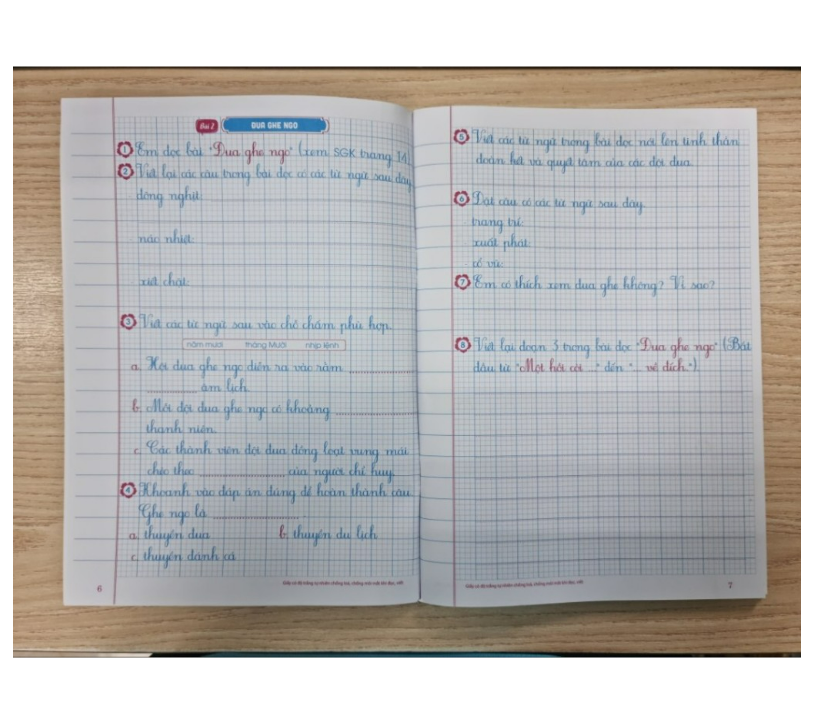 Bài 2
ĐUA GHE NGO
1 Em đọc bài "Đua ghe ngo" (xem SGK trang 14).
2 Viết lại các câu trong bài đọc có các từ ngữ sau đây
đông nghịt:
náo nhiệt:
xiết chặt:
3 Viết các từ ngữ sau vào chỗ chấm phù hợp.
năm mươi tháng Mười nhịp lệnh
a. Hội đua ghe ngo diễn ra vào rằm ............
............ âm lịch.
b. Mỗi đội đua ghe ngo có khoảng ............
thanh niên.
c. Các thành viên đội đua đồng loạt vung mái
chèo theo ............ của người chỉ huy.
4 Khoanh vào đáp án đúng để hoàn thành câu.
Ghe ngo là ............
a. thuyền đua b. thuyền du lịch
c. thuyền đánh cá
6
Giấy có độ trắng tự nhiên chống lóa, chống mỏi mắt khi đọc, viết
5 Viết các từ ngữ trong bài đọc nói lên tinh thần
đoàn kết và quyết tâm của các đội đua.
6 Đặt câu có các từ ngữ sau đây.
trang trí:
xuất phát:
cổ vũ:
7 Em có thích xem đua ghe không? Vì sao?
8 Viết lại đoạn 3 trong bài đọc "Đua ghe ngo" (Bắt
đầu từ "Một hồi còi..." đến "... về đích.")
Giấy có độ trắng tự nhiên chống lóa, chống mỏi mắt khi đọc, viết
7